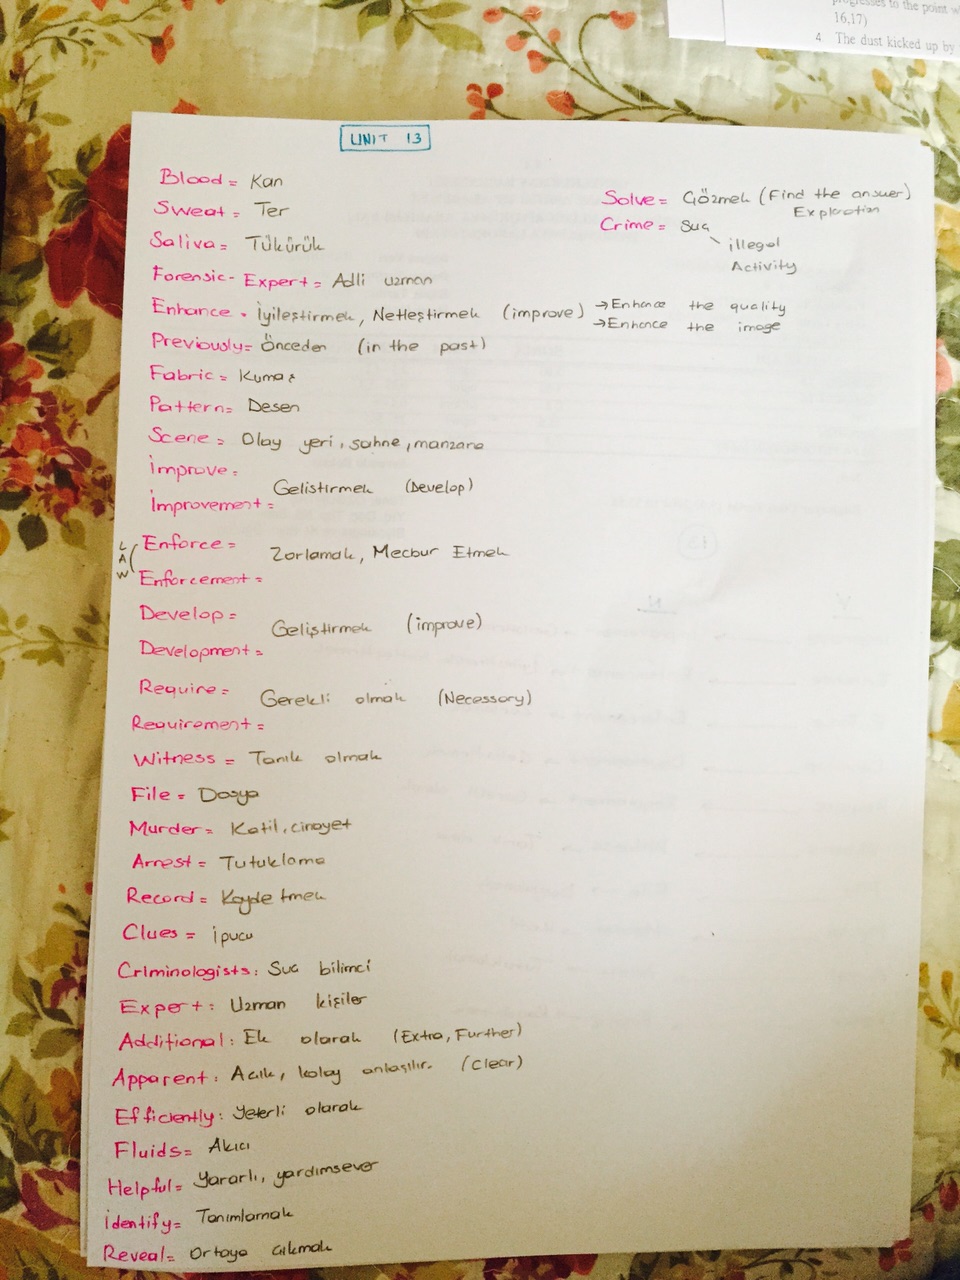 progresses to the point
16,17)
4. The dust kicked up by
UNIT 13
Blood = Kan
Sweat = Ter
Saliva = Tükürük
Forensic-Expert = Adli uzman
Enhance = İyileştirmek, Netleştirmek (improve) → Enhance the quality
→ Enhance the image
Previously = Önceden (in the past)
Fabric = Kumaş
Pattern = Desen
Scene = Olay yeri, sahne, manzara
İmprove =
Gelistirmek (Develop)
İmprovement =
LAW
Enforce =
Zorlamak, Mecbur Etmek
Enforcement =
Develop =
Geliştirmek (improve)
Development =
Require =
Gerekli olmak (Necessary)
Requirement =
Witness = Tanık olmak
File = Dosya
Murder = Katil, cinayet
Arrest = Tutuklama
Record = Kaydetmek
Clues = ipucu
Criminologists: Suc bilimci
Expert: Uzman kişiler
Additional: Ek olarak (Extra, Further)
Apparent: Acık, kolay anlaşılır. (Clear)
Efficiently: Yeterli olarak
Fluids = Akıcı
Helpful = Yararlı, yardımsever
İdentify = Tanımlamak
Reveal = Ortaya cıkmak
Solve = Çözmek (Find the answer)
Explaration
Crime = Suç
illegal
Activity